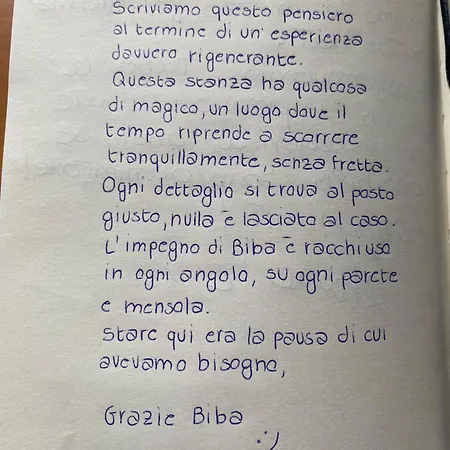 Scriviamo questo pensiero
al termine di un'esperienza
davvero rigenerante.
Questa stanza ha qualcosa
di magico, un luogo dove il
tempo riprende a scorrere
tranquillamente, senza fretta.
Ogni dettaglio si trova al posto
giusto, nulla è lasciato al caso.
L'impegno di Biba è racchiuso
in ogni angolo, su ogni parete
e mensola.
Stare qui era la pausa di cui
avevamo bisogno,
Grazie Biba
:)